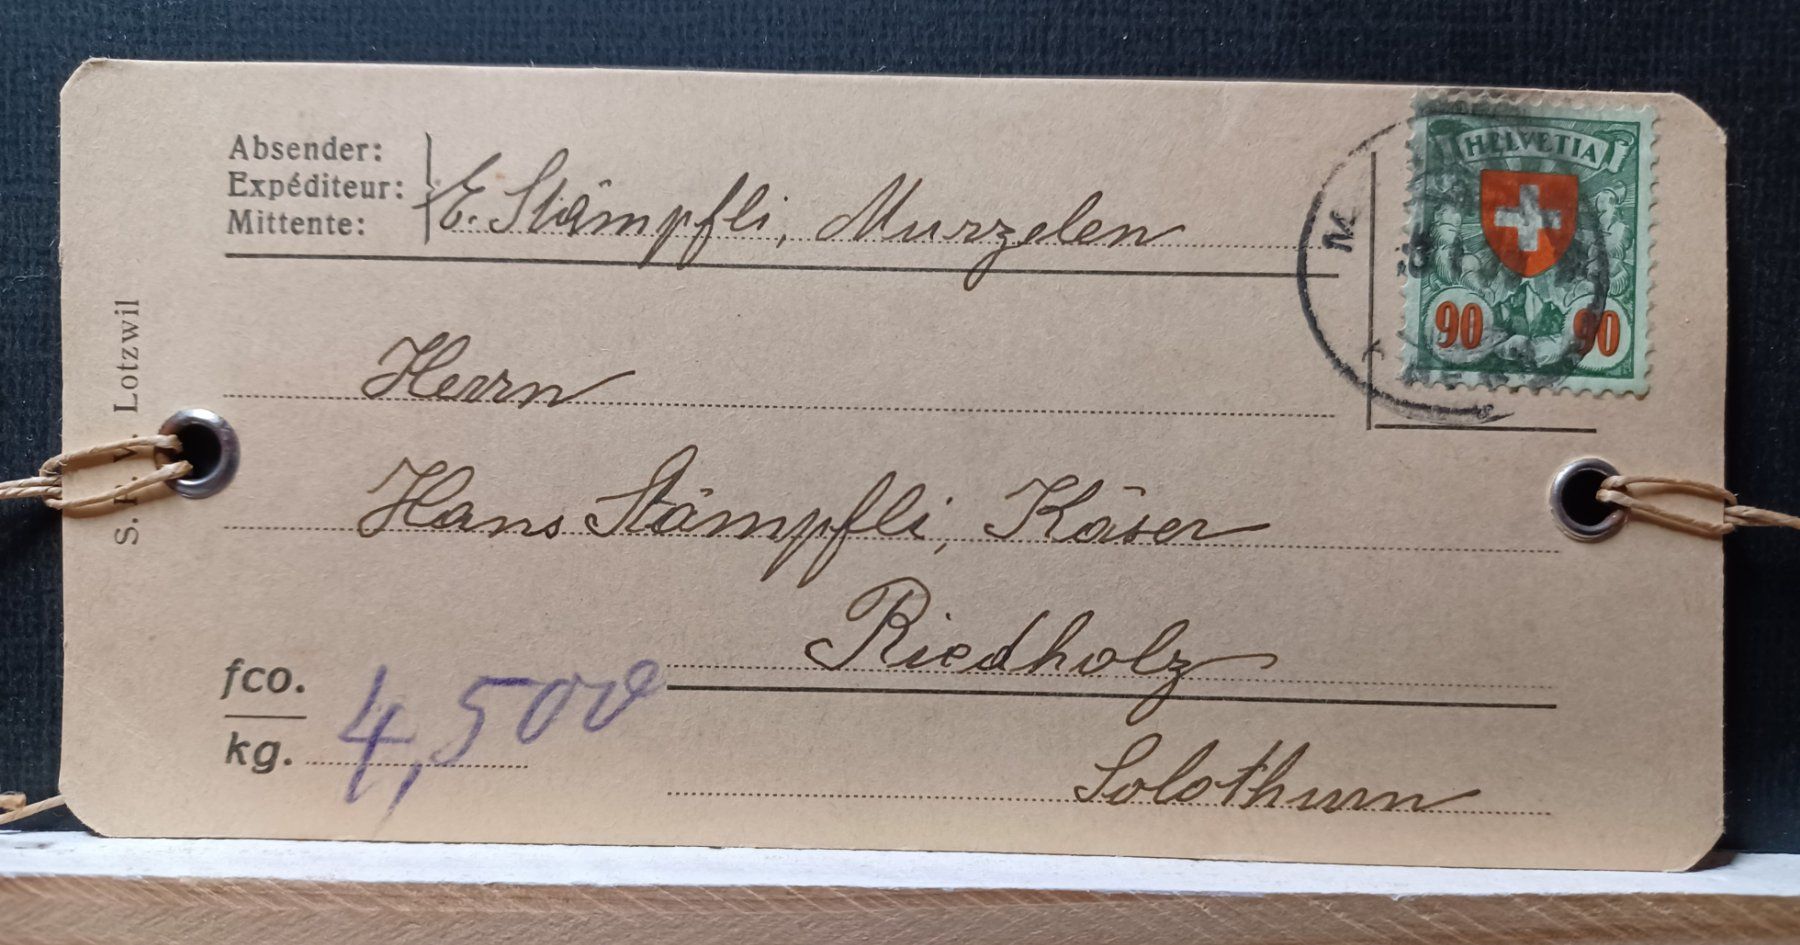 Absender:
Expéditeur:
Mittente:
E. Stämpfli, Murzelen
HELVETIA
90 90
Herrn
Hans Stämpfli, Käser
Riedholz
Solothurn
fco.
kg.
4,500
Lotzwil